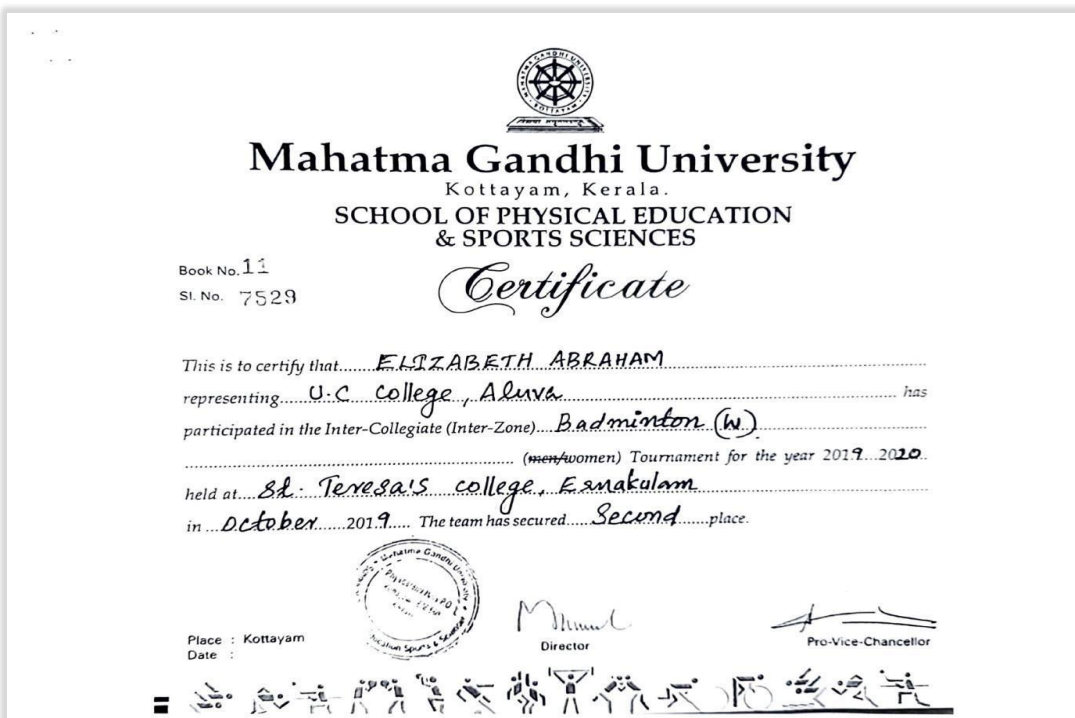 MAHATMA GANDHI UNIVERSITY
KOTTAYAM
Mahatma Gandhi University
Kottayam, Kerala.
SCHOOL OF PHYSICAL EDUCATION
& SPORTS SCIENCES
Book No. 11
Sl. No. 7529
Certificate
This is to certify that ELIZABETH ABRAHAM
representing U.C College, Aluva has
participated in the Inter-Collegiate (Inter-Zone) Badminton (W)
(men/women) Tournament for the year 2019 2020
held at St. Teresa's college, Ernakulam
in October 2019 The team has secured Second place.
Mahatma Gandhi University
Place : Kottayam
Date :
Director
Pro-Vice-Chancellor